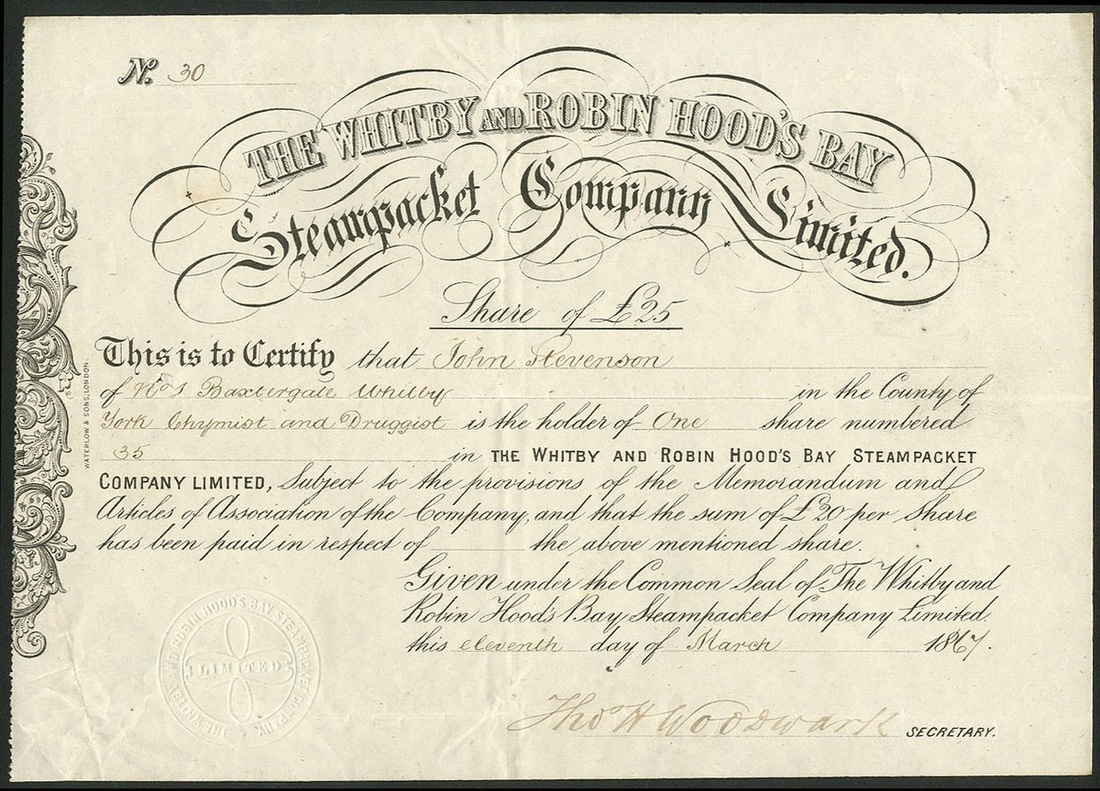 No. 30
THE WHITBY AND ROBIN HOOD'S BAY
Steampacket Company Limited.
Share of £25
This is to Certify that John Stevenson
of No 1 Baxtergate Whitby in the County of
York Chymist and Druggist is the holder of One share numbered
35 in THE WHITBY AND ROBIN HOOD'S BAY STEAMPACKET
COMPANY LIMITED, Subject to the provisions of the Memorandum and
Articles of Association of the Company, and that the sum of £20 per share
has been paid in respect of the above mentioned share.
Given under the Common Seal of The Whitby and
Robin Hood's Bay Steampacket Company Limited.
this eleventh day of March 1867.
Thos H Woodwark SECRETARY.
WATERLOW & SONS, LONDON.
THE WHITBY AND ROBIN HOOD'S BAY STEAMPACKET COMPANY
LIMITED